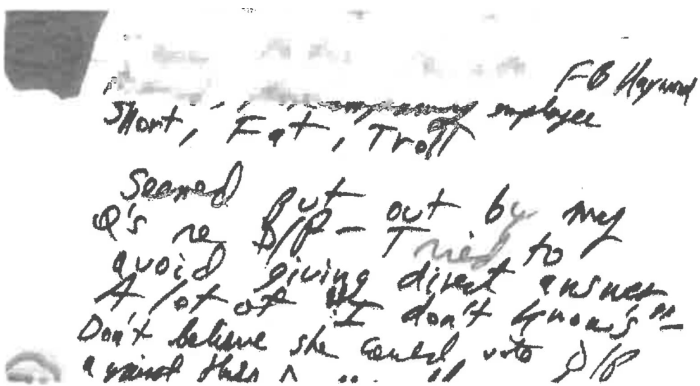 FB Hayward
employee
Short, Fat, Troll
Seemed put out by my
Q's re D/P - Tried to
avoid giving direct answer
A lot of "I don't knows" -
Don't believe she could vote D/P
against this